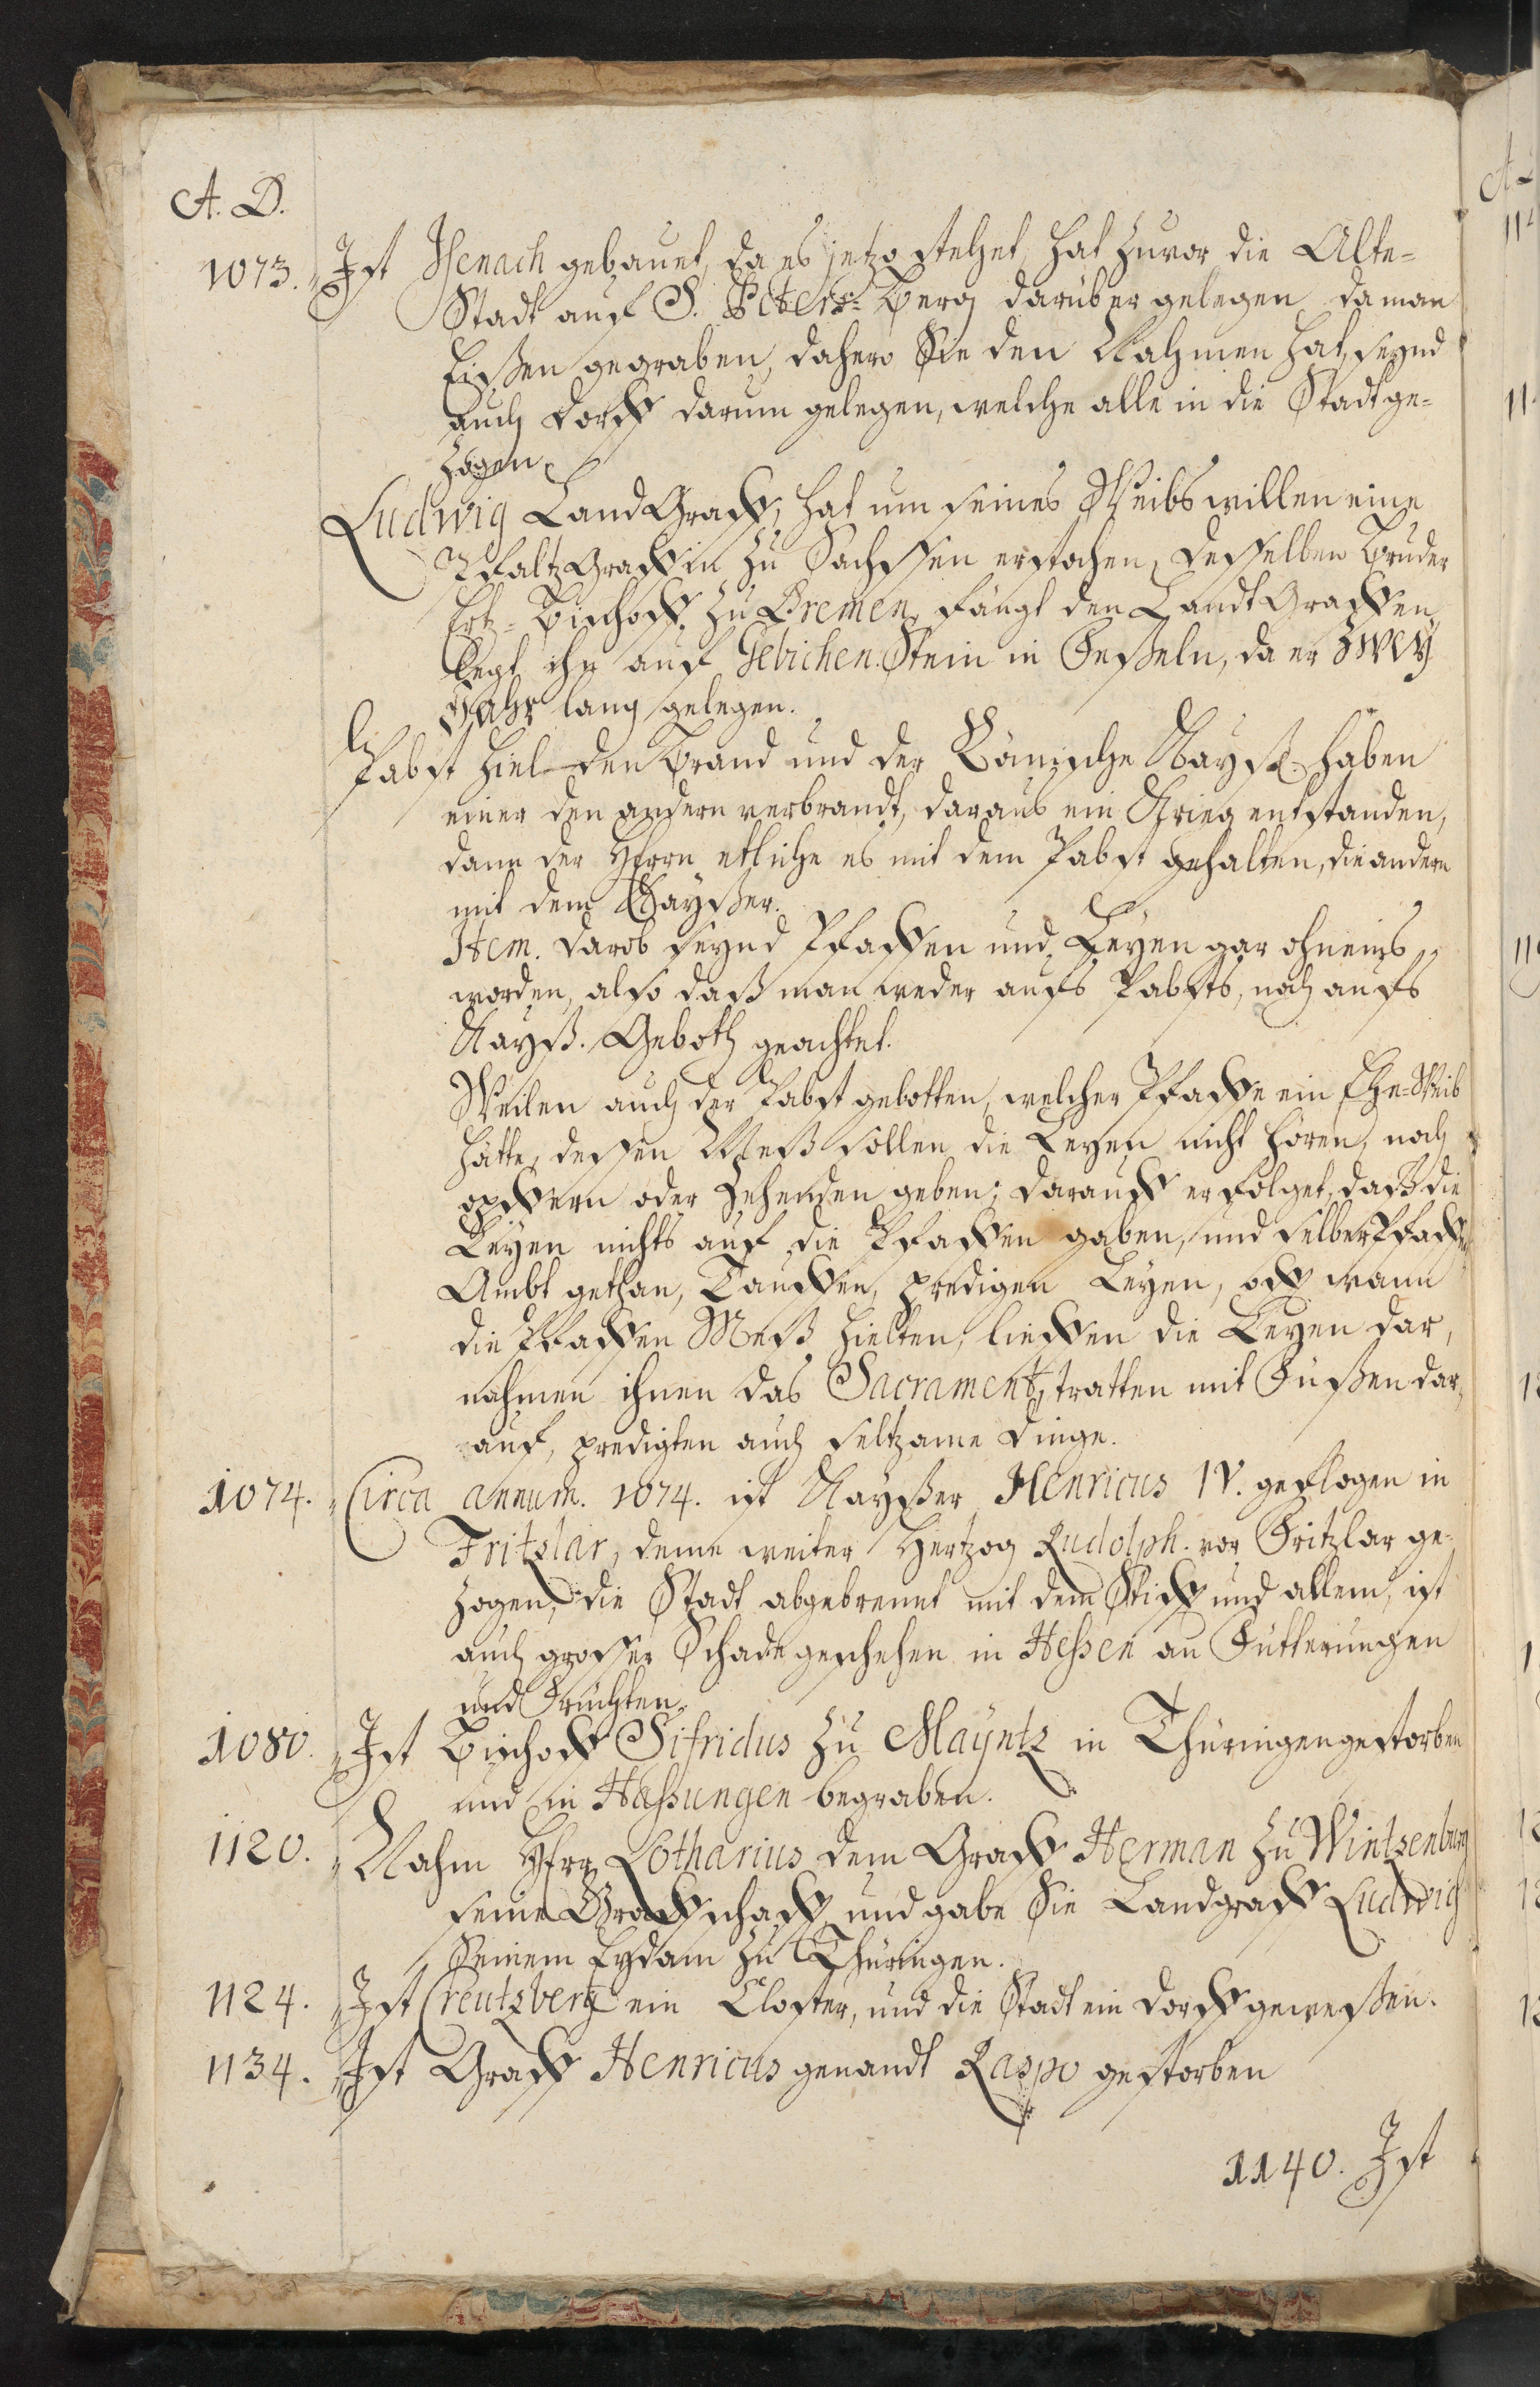 A. D.
1073. Ist Isenach gebauet, da es jetzo stehet, hat zuvor die Alte-
Stadt auf S. Peters-Berg darüber gelegen, da man
Eißen gegraben, dahero Sie den Nahmen hat, seynd
auch Dorff darum gelegen, welche alle in die Stadt ge-
zogen.
Ludwig LandGraff, hat um seines Weibs willen eine
PfaltzGraffin zu Sachssen erstochen, desselben Bruder
Ertz-Bischoff zu Bremen, fängt den LandtGraffen,
legt ihn auf Gebichen.Stein in Feßeln, da er zwey
Jahr lang gelegen.
Pabst Hiel den Brand und der Römische Kayß. haben
einer den andern verbrandt, daraus ein Krieg entstanden,
dann der Herrn etliche es mit dem Pabst gehalten, die andern
mit dem Kayßer.
Item. darob seynd Pfaffen und Leyen gar ohneins
worden, also daß man weder aufs Pabsts, noch aufs
Kayß. Geboth geachtet.
Weilen auch der Pabst gebotten, welcher Pfaffe ein Ehe-Weib
hätte, dessen Meß sollen die Leyen nicht hören, noch
opffern oder Zehenden geben; darauff erfolget, daß die
Leyen nichts auf die Pfaffen gaben, und selber Pfaffen
Ambt gethan, Tauffen, predigen Leyen, off wann
die Pfaffen Meß hielten, lieffen die Leyen dar,
nahmen ihnen das Sacrament, tratten mit Füßen dar,
auf, predigten auch seltzame Dinge.
1074. Circa annum. 1074. ist Kayßer Henricus IV. geflogen in
Fritzlar, deme weiter Hertzog Rudolph. vor Fritzlar ge-
zogen, die Stadt abgebrennt mit dem Stiff und allem, ist
auch grosser Schade geschehen in Hessen an Fütterungen
und Früchten.
1080. Ist Bischoff Sifridus zu Mayntz in Thüringen gestorben
und in Hassungen begraben.
1120. Nahm Herr Lotharius dem Graff Herman zu Wintzenburg
seine Graffschaff, und gabe Sie Landgraff Ludwig
Seinem Eydam zu Thüringen.
1124. Ist Creutzberg ein Closter, und die Stadt ein Dorff geweßen.
1134. Ist Graff Henricus genandt Raspo gestorben
1140. Ist